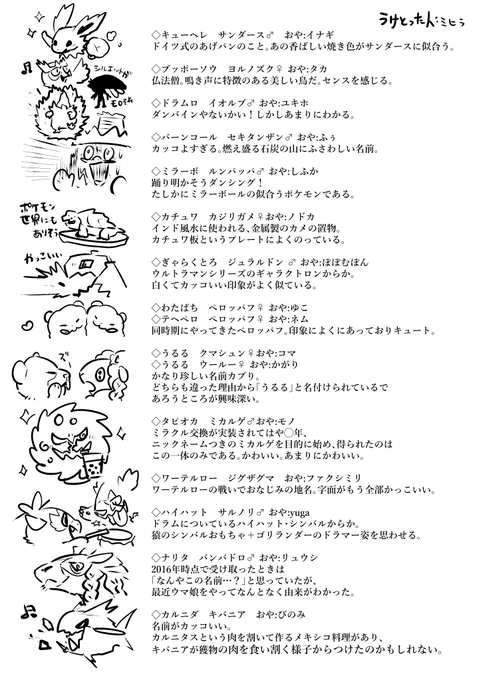 うけとったん:ミヒラ
◇キューヘレ　サンダース♂　おや:イナギ
ドイツ式のあげパンのこと。あの香ばしい焼き色がサンダースに似合う。
◇ブッポーソウ　ヨルノズク♀ おや:タカ
仏法僧。鳴き声に特徴のある美しい鳥だ。センスを感じる。
シルエットが
◇ドラムロ　イオルブ♂ おや:ユキホ
ダンバインやないかい！しかしあまりにわかる。
◇バーンコール　セキタンザン♂ おや:ふぅ
カッコよすぎる。燃え盛る石炭の山にふさわしい名前。
◇ミラーボ　ルンパッパ♂ おや:しふか
踊り明かそうダンシング！
たしかにミラーボールの似合うポケモンである。
ポケモン
世界にも
ありそう
◇カチュワ　カジリガメ♀おや:ノドカ
インド風水に使われる、金属製のカメの置物。
カチュワ板というプレートによくのっている。
やっこいい
◇ぎゃらくとろ　ジュラルドン ♂ おや:ぽぽむぽん
ウルトラマンシリーズのギャラクトロンからか。
白くてカッコいい印象がよく似ている。
◇わたぱち　ペロッパフ♀ おや:ゆこ
◇テヘペロ　ペロッパフ♀ おや:ネム
同時期にやってきたペロッパフ。印象によくにあっておりキュート。
◇うるる　クマシュン♀おや:コマ
◇うるる　ウールー♀おや:かがり
かなり珍しい名前カブり。
どちらも違った理由から「うるる」と名付けられているで
あろうところが興味深い。
◇タピオカ　ミカルゲ♂おや:モノ
ミラクル交換が実装されてはや◯年、
ニックネームつきのミカルゲを目的に始め、得られたのは
この一体のみである。かわいい。あまりにかわいい。
◇ワーテルロー　ジグザグマ　おや:ファクシミリ
ワーテルローの戦いでおなじみの地名。字面がもう全部かっこいい。
◇ハイハット　サルノリ♂ おや:yuga
ドラムについているハイハット・シンバルからか。
猿のシンバルおもちゃ＋ゴリランダーのドラマー姿を思わせる。
◇ナリタ　バンバドロ♂ おや:リュウシ
2016年時点で受け取ったときは
「なんやこの名前…？」と思っていたが、
最近ウマ娘をやってなんとなく由来がわかった。
◇カルニダ　キバニア　おや:びのみ
名前がカッコいい。
カルニタスという肉を割いて作るメキシコ料理があり、
キバニアが獲物の肉を食い割く様子からつけたのかもしれない。